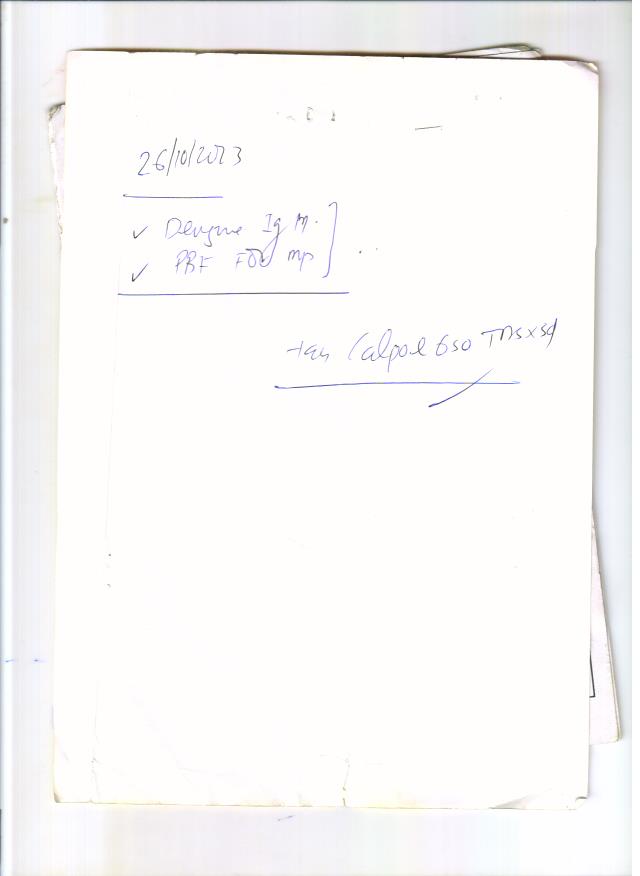 26/10/2023
✓ Dengue IgM.
✓ PBF FOR mp
Tab Calpol 650 TDS x 3d